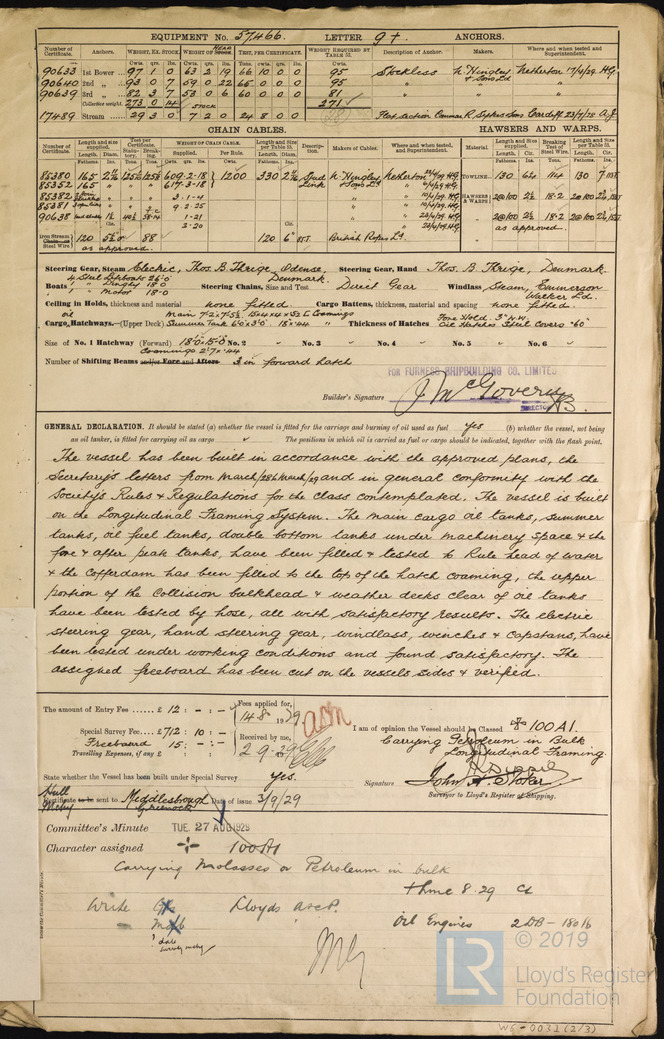 EQUIPMENT No. 57466. LETTER g† ANCHORS.
Number of Certificate. Anchors. WEIGHT, EX. STOCK. WEIGHT OF HEAD STOCK TEST, PER CERTIFICATE. WEIGHT REQUIRED BY TABLE 31. Description of Anchor. Makers. Where and when tested and Superintendent.
Cwts. qrs. lbs. Cwts. qrs. lbs. Tons. cwts. qrs. lbs. Cwts.
90633 1st Bower 97 1 0 63 2 19 66 10 0 0 95 Stockless N. Hingley & Sons Ld Netherton 17/4/29. H.G.
90640 2nd „ 93 0 7 59 0 22 65 0 0 0 95 „ „ „
90639 3rd „ 82 3 7 53 0 6 60 0 0 0 81 „ „ „
Collective weight. 273 0 14 STOCK 271
17489 Stream 29 3 0 7 2 0 24 8 0 0 R. Sykes & Son Cardiff 23/7/28
CHAIN CABLES. HAWSERS AND WARPS.
Number of Certificate. Length and size supplied. Test per Certificate. WEIGHT OF CHAIN CABLE. Length and Size per Table 31. Description. Makers of Cables. Where and when tested, and Superintendent. Material Length and size supplied. Breaking Test of Steel Wire. Length and Size per Table 31.
Fathoms. Diam. Statutory. Breaking. Supplied. Per Rule. Length. Diam. Length. Cir. Length. Cir.
85380 165 609-2-18 1200 330 Stud N. Hingley Netherton TOWLINE 130 114 130 7
85352 165 „ „ 617-3-18 Link & Sons Ld
85382 3-1-4 HAWSERS & WARPS 2@100 2½ 18·2 2@100
85381 9-2-25
90638 1-21 „ 2@100 2½ 18·2 2@100
2-20 as approved.
Iron Stream Chain or Steel Wire 120 88 120 6" British Ropes Ld.
as approved.
Steering Gear, Steam Electric, Thos. B. Thrige, Odense, Denmark. Steering Gear, Hand Thos. B. Thrige, Denmark.
Boats 4 Steel Lifeboats 26·0 Steering Chains, Size and Test Direct Gear Windlass Steam, Emmerson Walker Ld.
„ „ Dinghy 18·0
„ „ Motor 18·0
Ceiling in Holds, thickness and material none fitted. Cargo Battens, thickness, material and spacing none fitted.
Cargo Hatchways.—(Upper Deck) Summer Tank 6'0 x 3'0 Thickness of Hatches Fore Hold. 3" W.W. Oil Hatches Steel Covers ·60"
Size of No. 1 Hatchway (Forward) 18'0 x 15'0 No. 2 No. 3 No. 4 No. 5 No. 6
Coamings
Number of Shifting Beams and/or Fore and Afters 3 in forward hatch
FOR FURNESS SHIPBUILDING CO. LIMITED
Builder's Signature J McGovern
DIRECTOR
GENERAL DECLARATION. It should be stated (a) whether the vessel is fitted for the carriage and burning of oil used as fuel yes (b) whether the vessel, not being
an oil tanker, is fitted for carrying oil as cargo The positions in which oil is carried as fuel or cargo should be indicated, together with the flash point.
The vessel has been built in accordance with the approved plans, the
Secretary's letters from March/28 to March/29 and in general conformity with the
Society's Rules & Regulations for the class contemplated. The vessel is built
on the Longitudinal Framing System. The main cargo oil tanks, summer
tanks, oil fuel tanks, double bottom tanks under machinery space & the
fore & after peak tanks, have been filled & tested to Rule head of water
& the Cofferdam has been filled to the top of the hatch coaming, the upper
portion of the Collision bulkhead & weather decks clear of oil tanks
have been tested by hose, all with satisfactory results. The electric
steering gear, hand steering gear, windlass, winches & capstans, have
been tested under working conditions and found satisfactory. The
assigned freeboard has been cut on the vessels sides & verified.
The amount of Entry Fee £ 12 : - : - Fees applied for,
14·8 19 29
Special Survey Fee £ 712 : 10 : - I am of opinion the Vessel should be Classed 100 A1.
Freeboard 15 : - : - Received by me,
Travelling Expenses, if any £ 2·9·29
Carrying Petroleum in Bulk
Longitudinal Framing
State whether the Vessel has been built under Special Survey Yes.
Signature John A. Stoker
Surveyor to Lloyd's Register of Shipping.
Hull Certificate to be sent to Middlesbrough Date of issue 3/9/29
Mchy Greenock
Committee's Minute TUE. 27 AUG 1929
Character assigned 100A1
Carrying Molasses or Petroleum in bulk
8·29
Write Lloyds A&CP.
Oil Engines 2 DB - 180 lb
© 2019
LR
Lloyd's Register
Foundation
W6-0032 (2/3)